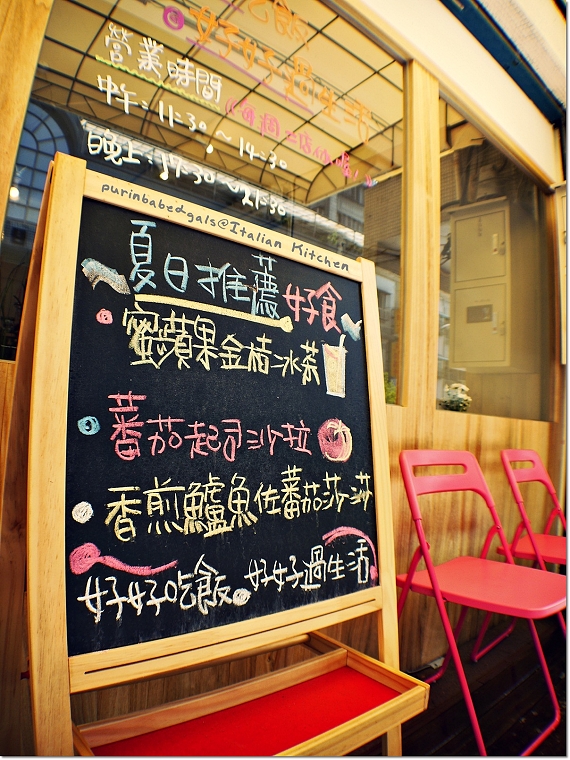 吃飯
好好過生活
營業時間
中午：11:30～14:30
晚上：17:30～21:30
purinbabedgals@Italian Kitchen
夏日推薦好食
蜜蘋果金桔冰茶
蕃茄起司沙拉
香煎鱸魚佐蕃茄莎莎
好好吃飯。好好過生活